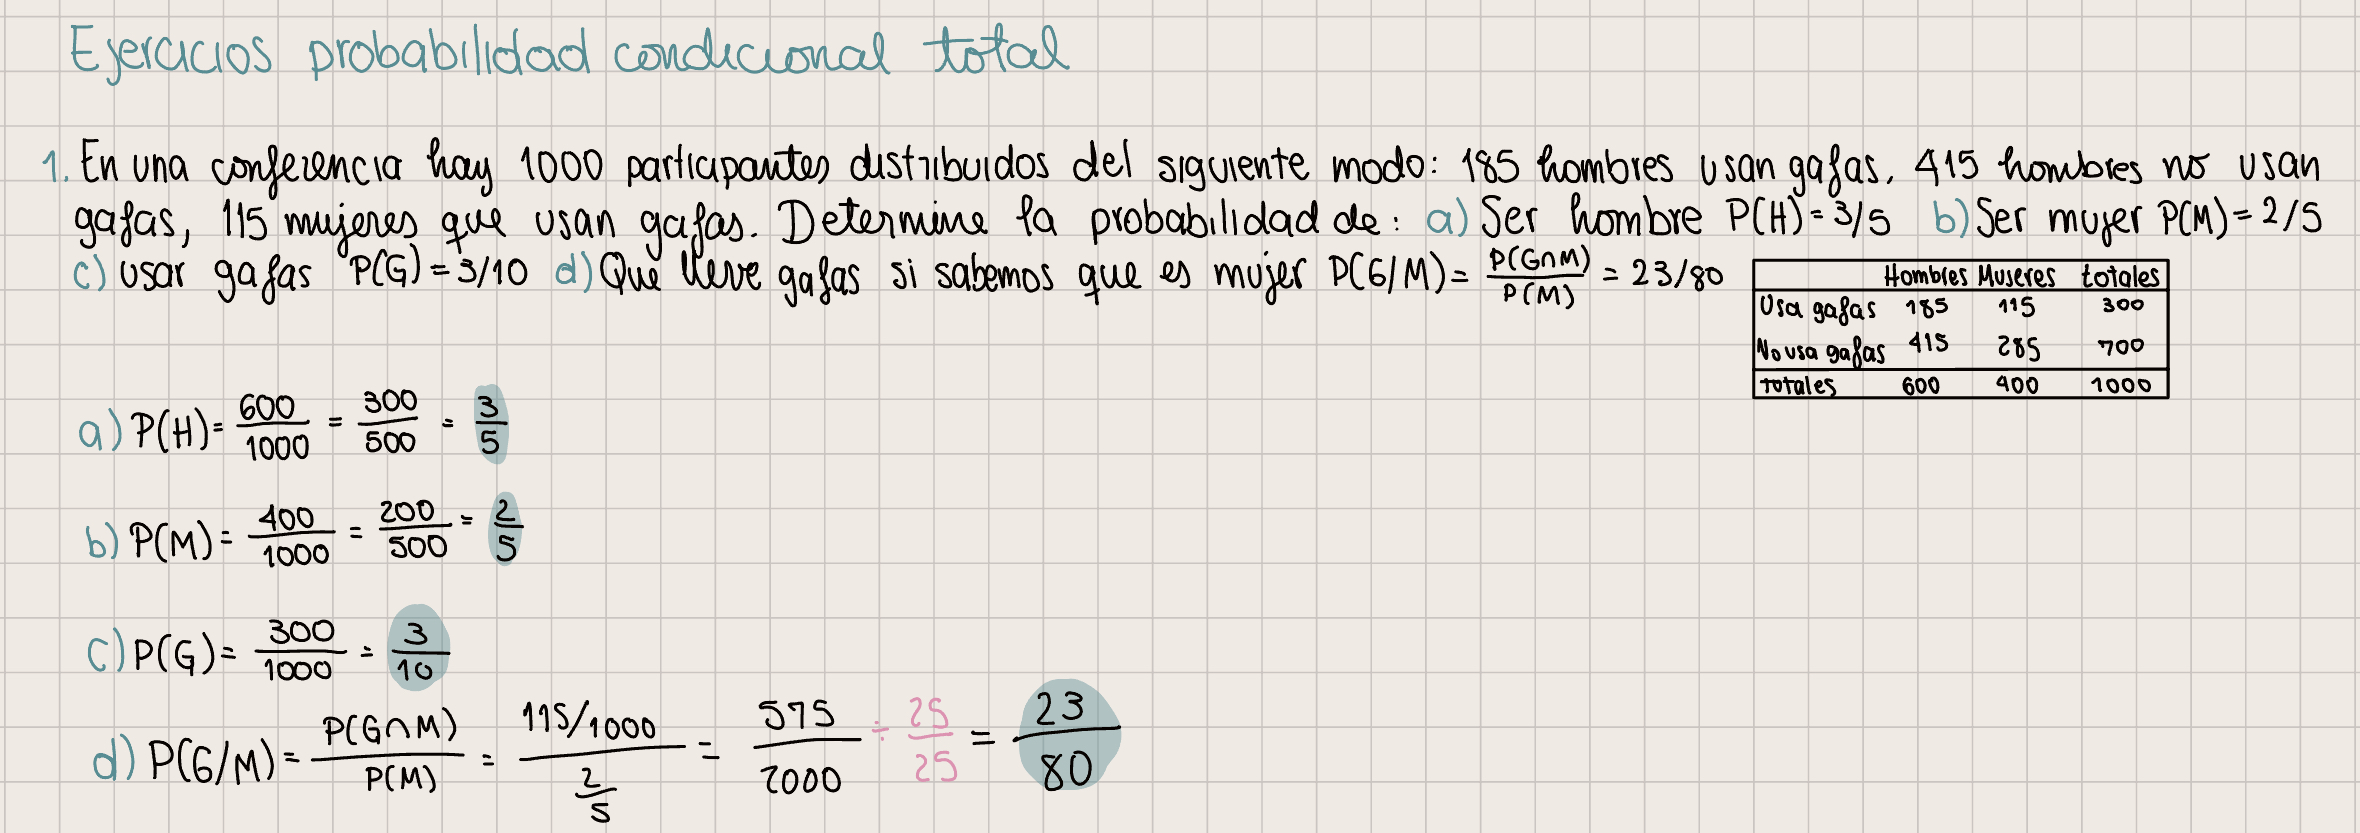 Ejercicios probabilidad condicional total
1. En una conferencia hay 1000 participantes distribuidos del siguiente modo: 185 hombres usan gafas, 415 hombres no usan
gafas, 115 mujeres que usan gafas. Determine la probabilidad de: a) Ser hombre P(H)=3/5 b) Ser mujer P(M)=2/5
c) usar gafas P(G)=3/10 d) Que lleve gafas si sabemos que es mujer P(G/M)= P(G∩M)/P(M) = 23/80
Hombres Mujeres totales
Usa gafas 185 115 300
No usa gafas 415 285 700
totales 600 400 1000
a) P(H)= 600/1000 = 300/500 = 3/5
b) P(M)= 400/1000 = 200/500 = 2/5
c) P(G)= 300/1000 = 3/10
d) P(G/M)= P(G∩M)/P(M) = 115/1000 / 2/5 = 575/2000 ÷ 25/25 = 23/80